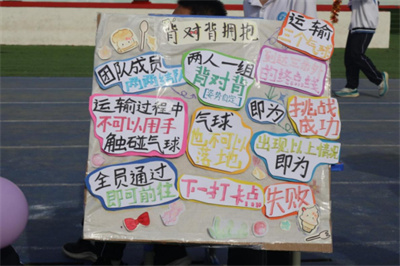 背对背拥抱
运输
三个气球
团队成员
两两
两人一组
背对背
运输过程中
不可以用手
触碰气球
气球
也不可以
落地
的终点线
即为
挑战
成功
出现以上情况
即为
失败
全员通过
即可前往
下一打卡点